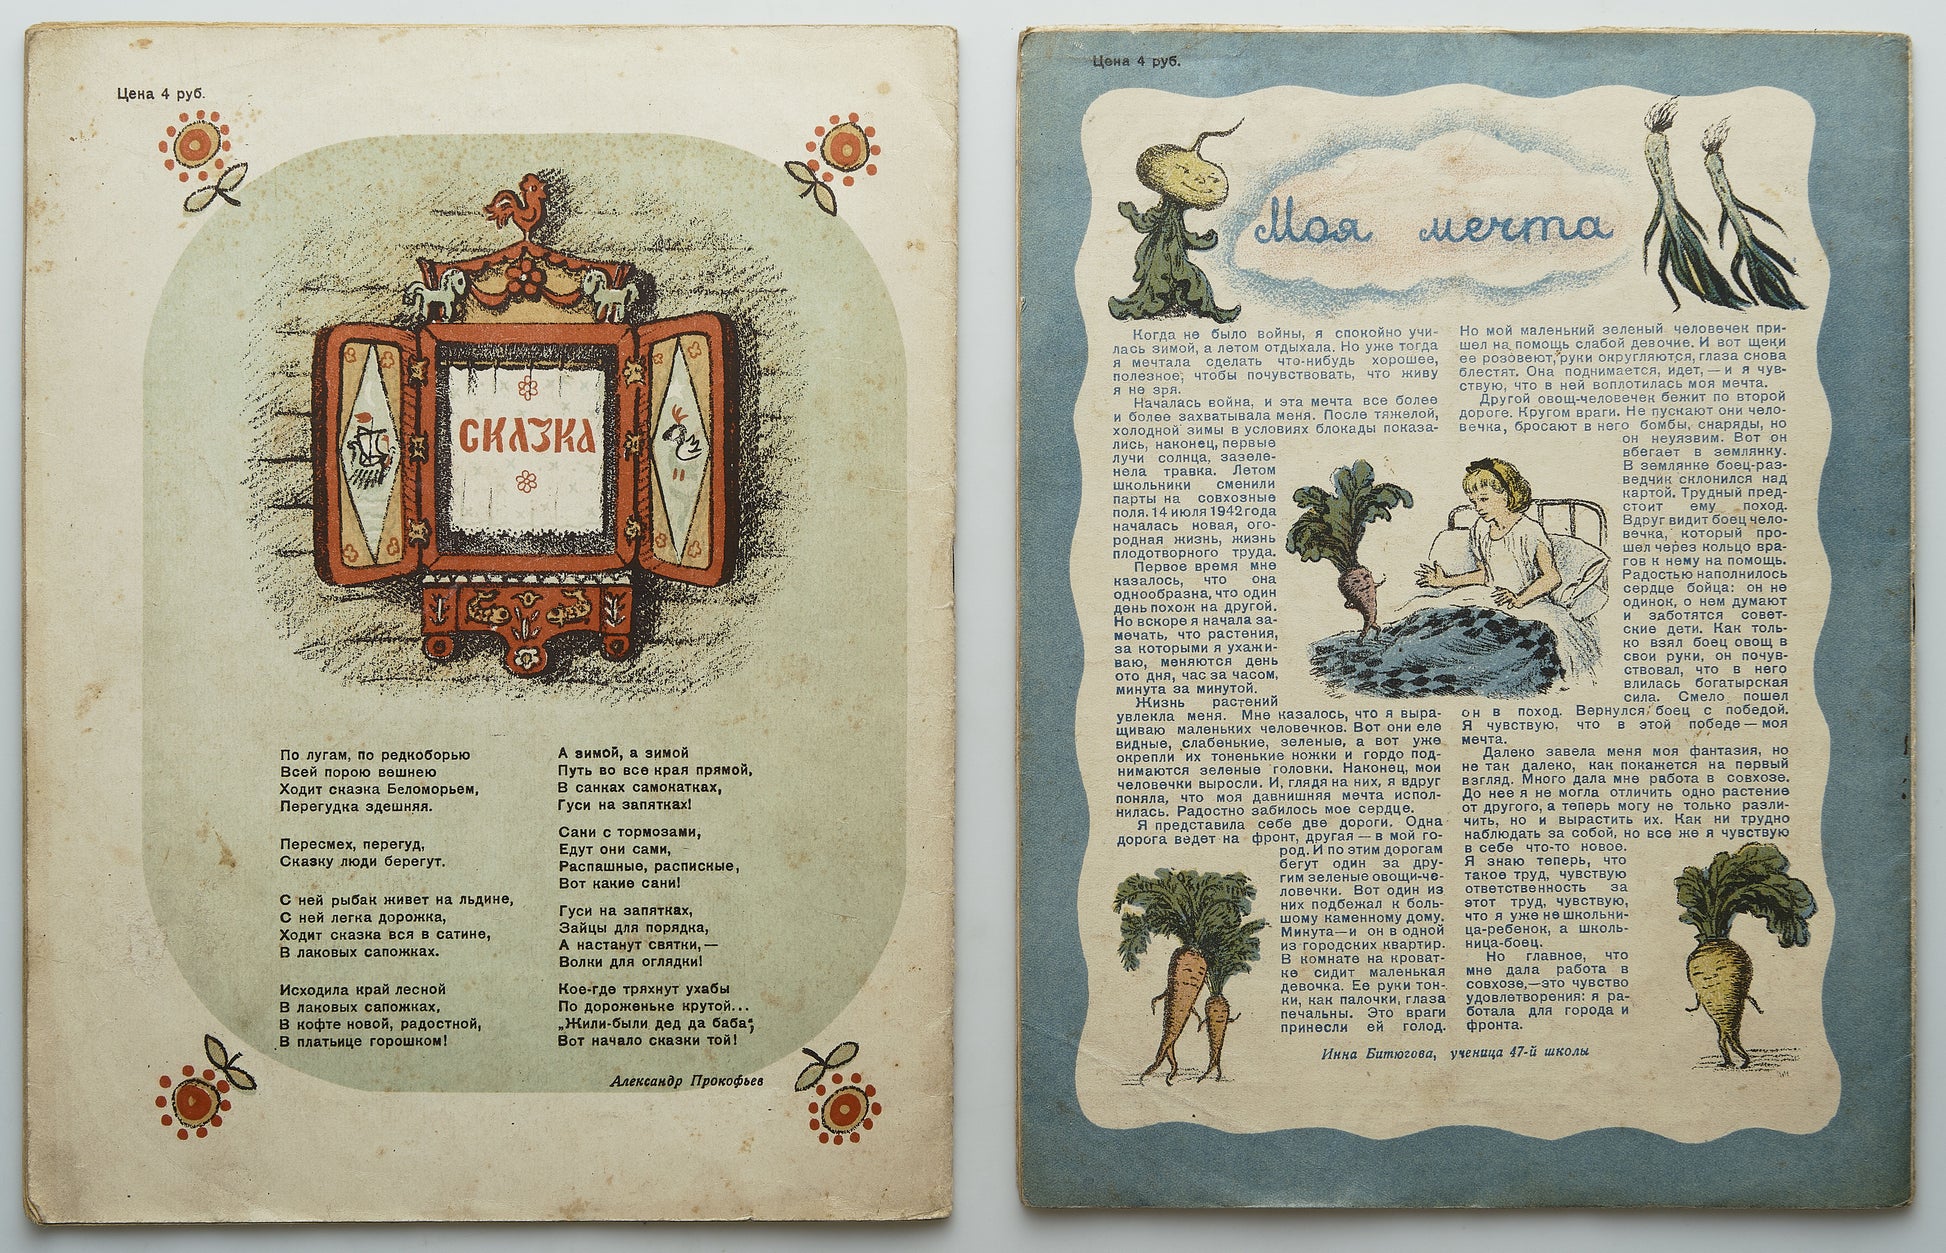 Цена 4 руб.
СКАЗКА
По лугам, по редкоборью
Всей порою вешнею
Ходит сказка Беломорьем,
Перегудка здешняя.
Пересмех, перегуд,
Сказку люди берегут.
С ней рыбак живет на льдине,
С ней легка дорожка,
Ходит сказка вся в сатине,
В лаковых сапожках.
Исходила край лесной
В лаковых сапожках,
В кофте новой, радостной,
В платьице горошком!
А зимой, а зимой
Путь во все края прямой,
В санках самокатках,
Гуси на запятках!
Сани с тормозами,
Едут они сами,
Распашные, расписные,
Вот какие сани!
Гуси на запятках,
Зайцы для порядка,
А настанут святки,—
Волки для оглядки!
Кое-где тряхнут ухабы
По дороженьке крутой...
„Жили-были дед да баба“,
Вот начало сказки той!
Александр Прокофьев
Цена 4 руб.
Моя мечта
Когда не было войны, я спокойно учи-
лась зимой, а летом отдыхала. Но уже тогда
я мечтала сделать что-нибудь хорошее,
полезное, чтобы почувствовать, что живу
я не зря.
Началась война, и эта мечта все более
и более захватывала меня. После тяжелой,
холодной зимы в условиях блокады показа-
лись, наконец, первые
лучи солнца, зазеле-
нела травка. Летом
школьники сменили
парты на совхозные
поля. 14 июля 1942 года
началась новая, ого-
родная жизнь, жизнь
плодотворного труда.
Первое время мне
казалось, что она
однообразна, что один
день похож на другой.
Но вскоре я начала за-
мечать, что растения,
за которыми я ухажи-
ваю, меняются день
ото дня, час за часом,
минута за минутой.
Жизнь растений
увлекла меня. Мне казалось, что я выра-
щиваю маленьких человечков. Вот они еле
видные, слабенькие, зеленые, а вот уже
окрепли их тоненькие ножки и гордо под-
нимаются зеленые головки. Наконец, мои
человечки выросли. И, глядя на них, я вдруг
поняла, что моя давнишняя мечта испол-
нилась. Радостно забилось мое сердце.
Я представила себе две дороги. Одна
дорога ведет на фронт, другая — в мой го-
род. И по этим дорогам
бегут один за дру-
гим зеленые овощи-че-
ловечки. Вот один из
них подбежал к боль-
шому каменному дому.
Минута—и он в одной
из городских квартир.
В комнате на кроват-
ке сидит маленькая
девочка. Ее руки тон-
ки, как палочки, глаза
печальны. Это враги
принесли ей голод.
Но мой маленький зеленый человечек при-
шел на помощь слабой девочке. И вот щеки
ее розовеют, руки округляются, глаза снова
блестят. Она поднимается, идет,— и я чув-
ствую, что в ней воплотилась моя мечта.
Другой овощ-человечек бежит по второй
дороге. Кругом враги. Не пускают они чело-
вечка, бросают в него бомбы, снаряды, но
он неуязвим. Вот он
вбегает в землянку.
В землянке боец-раз-
ведчик склонился над
картой. Трудный пред-
стоит ему поход.
Вдруг видит боец чело-
вечка, который про-
шел через кольцо вра-
гов к нему на помощь.
Радостью наполнилось
сердце бойца: он не
одинок, о нем думают
и заботятся совет-
ские дети. Как толь-
ко взял боец овощ в
свои руки, он почув-
ствовал, что в него
влилась богатырская
сила. Смело пошел
он в поход. Вернулся боец с победой.
Я чувствую, что в этой победе — моя
мечта.
Далеко завела меня моя фантазия, но
не так далеко, как покажется на первый
взгляд. Много дала мне работа в совхозе.
До нее я не могла отличить одно растение
от другого, а теперь могу не только разли-
чить, но и вырастить их. Как ни трудно
наблюдать за собой, но все же я чувствую
в себе что-то новое.
Я знаю теперь, что
такое труд, чувствую
ответственность за
этот труд, чувствую,
что я уже не школьни-
ца-ребенок, а школь-
ница-боец.
Но главное, что
мне дала работа в
совхозе,—это чувство
удовлетворения: я ра-
ботала для города и
фронта.
Инна Битюгова, ученица 47-й школы